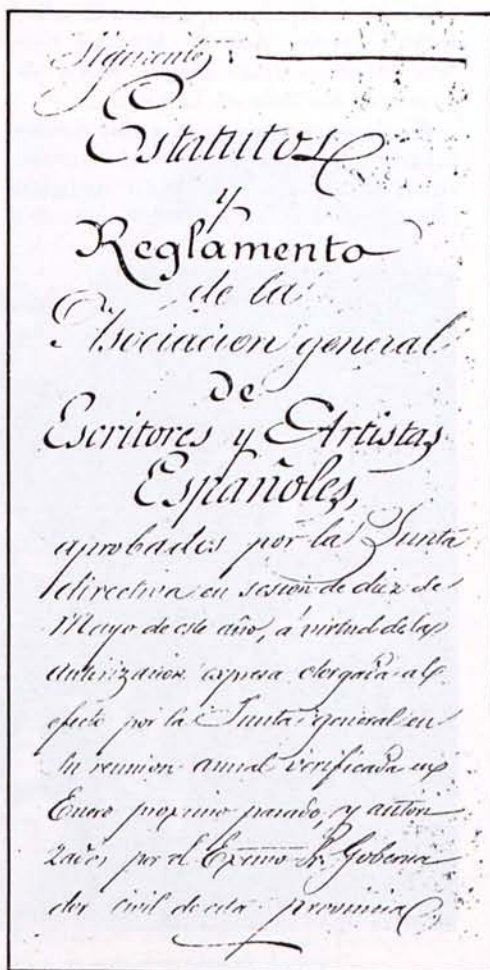 Siguientes:
Estatutos
y
Reglamento
de la
Asociacion general
De
Escritores y Artistas
Españoles,
aprobados por la Junta
directiva en sesion de diez de
Mayo de este año, á virtud de la
autorizacion expresa otorgada al
efecto por la Junta general en
su reunion anual verificada en
Enero proximo pasado, y autori
zados por el Excmo Sr. Goberna
dor civil de esta provincia